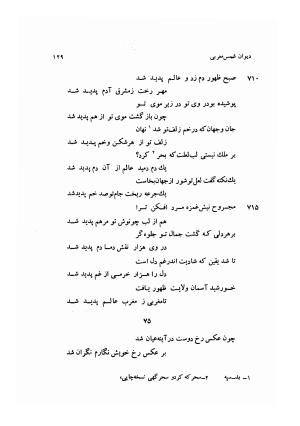 دیوان شمس‌مغربی ۱۲۹
۷۱۰ صبح ظهور دم زد و عالم پدید شد
مهر رخت زمشرق آدم پدید شد
پوشیده بودر وی تو در زیر موی تو
چون باز گشت موی تو از هم پدید شد
جان و جهان که در خم زلف تو شد ۱ نهان
زلف تو از هم شکن و خم پدید شد
بر ملك نیستی لب لعلت که بحر ۲ کرد؟
یك دم دمید عالم از آن دم پدید شد
یك نکته گفت لعل تو شور از جهان بخاست
یك جرعه ریخت جام تو صد خم پدید شد
۷۱۵ مجروح نیش غمزه مرد افکن ترا
هم از لب چو نوش تو مرهم پدید شد
بر هر دلی که گشت جمال تو جلوه گر
در وی هزار نقش دمادم پدید شد
تا شد یقین که شادیت اندر غم دل است
دل را هزار خرمی از غم پدید شد
خورشید آسمان ولایت ظهور یافت
تا مغربی ز مغرب عالم پدید شد
۷۵
چون عکس رخ دوست در آینه عیان شد
بر عکس رخ خویش نگارم نگران شد
۱- بد سیه ۲- سحر که کرد و سحر گهی نسخه چاپی»